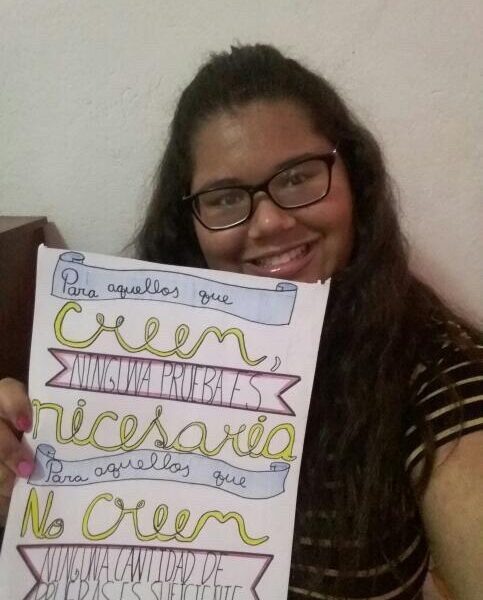 Para aquellos que
creen,
NINGUNA PRUEBA ES
nicesaria
Para aquellos que
No creen
NINGUNA CANTIDAD DE
PRUEBAS ES SUFICIENTE